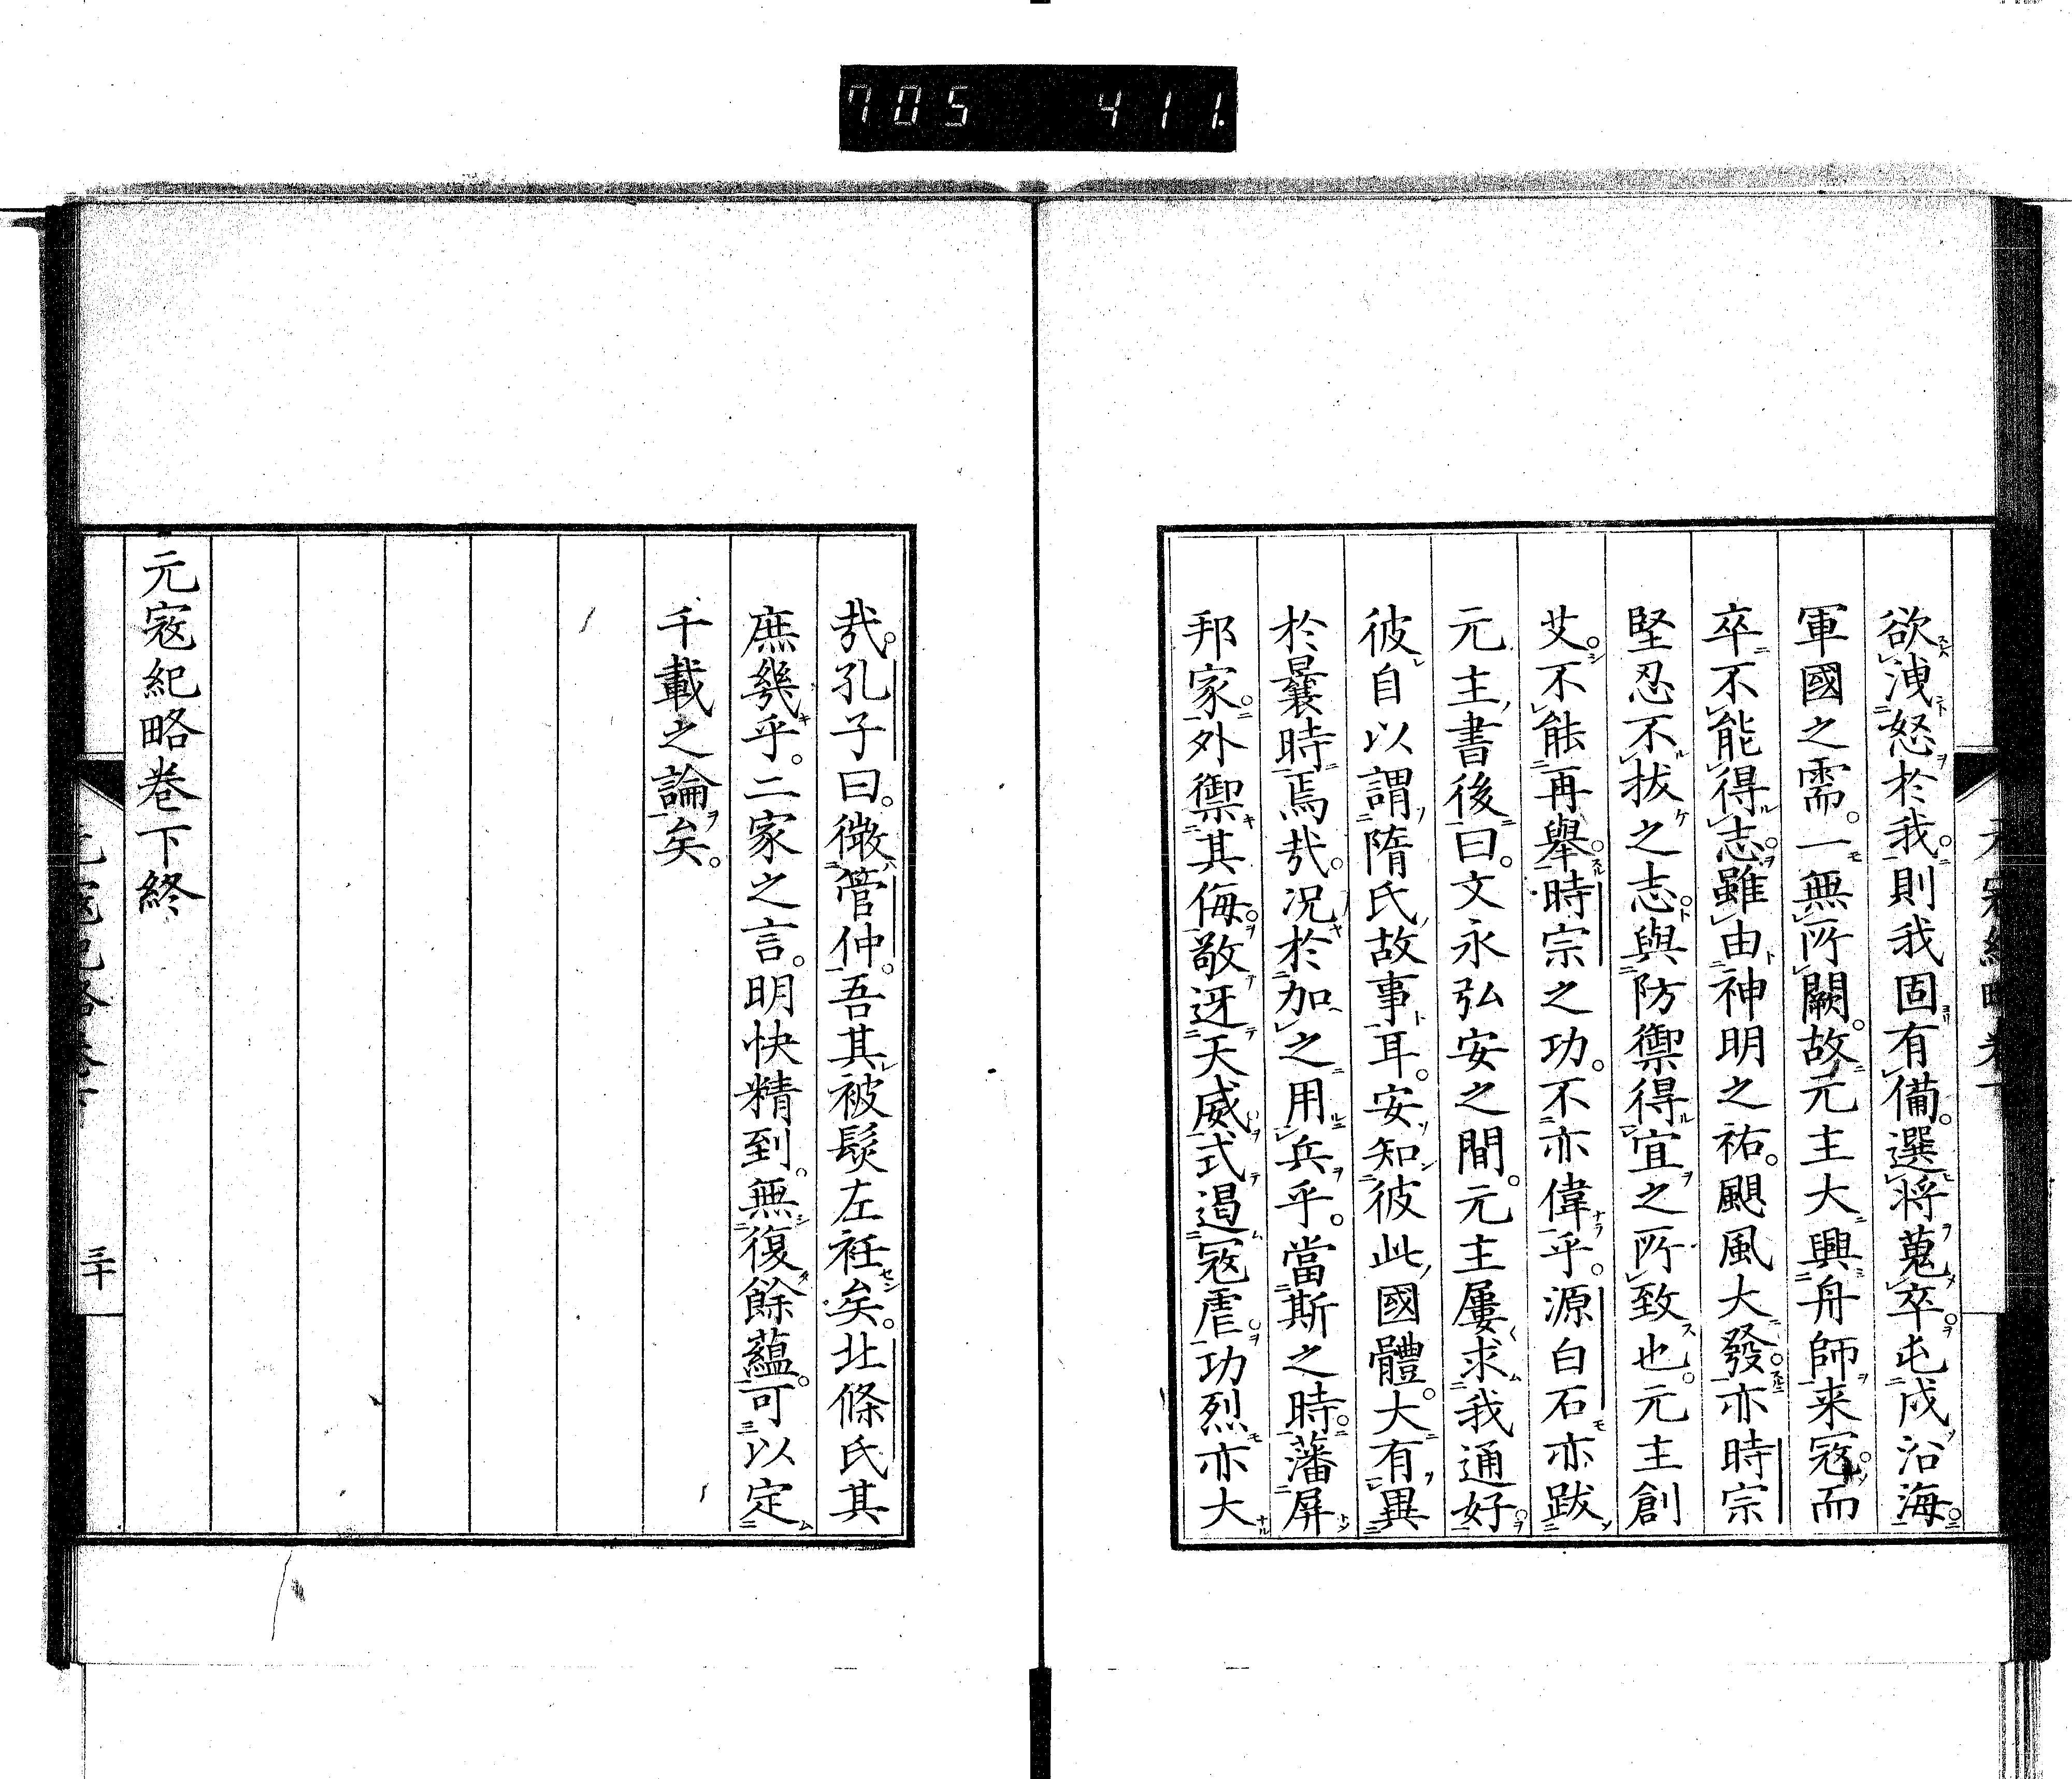 705 411
元寇紀略卷下
欲洩怒於我。則我固有備。選將蒐卒。屯戍沿海。
軍國之需。一無所闕。故元主大興舟師来寇。而
卒不能得志。雖由神明之祐。颶風大發。亦時宗
堅忍不拔之志。與防禦得宜之所致也。元主創
艾。不能再舉。時宗之功。不亦偉乎。源白石亦跋
元主書後曰。文永弘安之間。元主屢求我通好。
彼自以謂隋氏故事耳。安知彼此國體。大有異
於曩時焉㢤。況於加之用兵乎。當斯之時。藩屏
邦家。外禦其侮。敬迓天威。式遏寇虐。功烈亦大
㢤。孔子曰。微管仲。吾其被髮左衽矣。北條氏其
庶幾乎。二家之言。明快精到。無復餘蘊。可以定
千載之論矣。
元寇紀略卷下終
元寇紀略卷下
三十